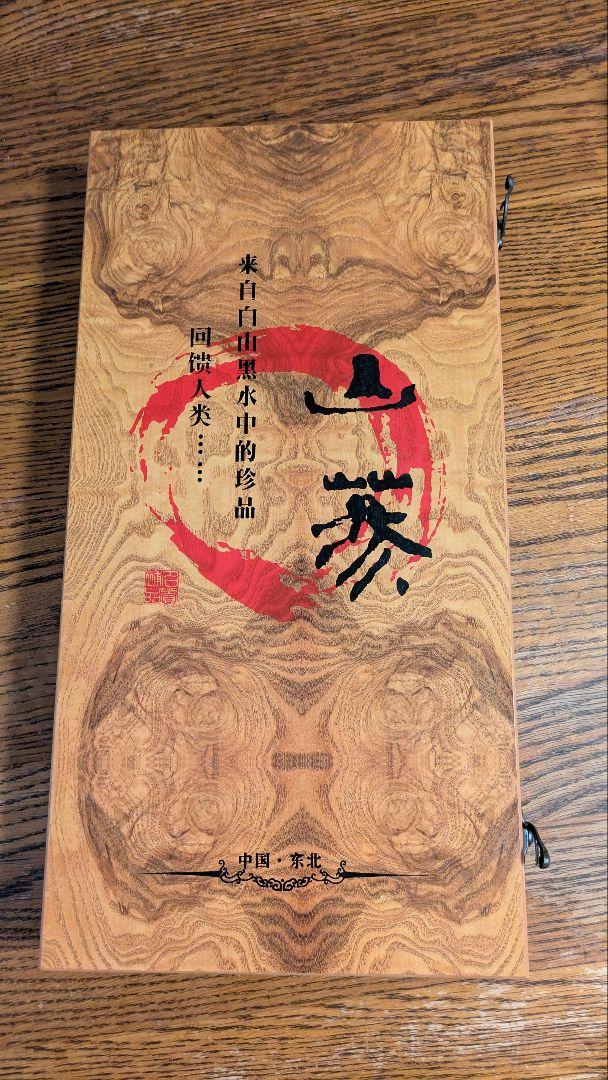 山参
来自白山黑水中的珍品
回馈人类……
中国·东北